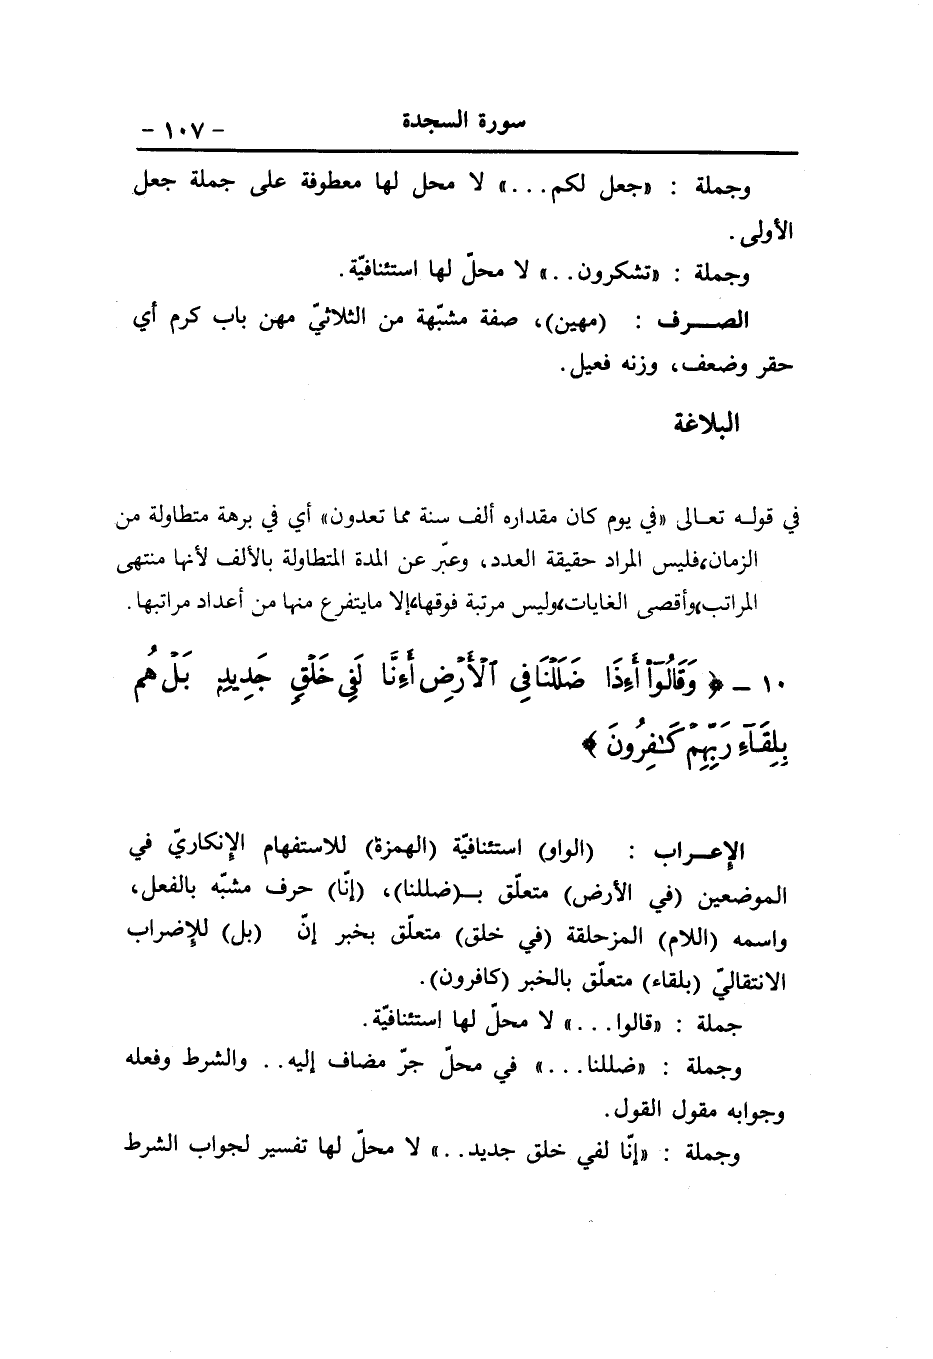 سورة السجدة
- ١٠٧ -
وجملة : «جعل لكم...» لا محل لها معطوفة على جملة جعل
الأولى.
وجملة : «تشكرون..» لا محلّ لها استئنافيّة.
الصـــرف : (مهين)، صفة مشبّهة من الثلاثيّ مهن باب كرم أي
حقر وضعف، وزنه فعيل.
البلاغة
في قولـه تعـالى «في يوم كان مقداره ألف سنة مما تعدون» أي في برهة متطاولة من
الزمان،فليس المراد حقيقة العدد، وعبّر عن المدة المتطاولة بالألف لأنها منتهى
المراتب،وأقصى الغايات،وليس مرتبة فوقها،إلا مايتفرع منها من أعداد مراتبها.
١٠ - ﴿ وَقَالُوٓا۟ أَءِذَا ضَلَلْنَا فِى ٱلْأَرْضِ أَءِنَّا لَفِى خَلْقٍ جَدِيدٍۭ بَلْ هُم
بِلِقَآءِ رَبِّهِمْ كَـٰفِرُونَ ﴾
الإعــراب : (الواو) استئنافيّة (الهمزة) للاستفهام الإنكاريّ في
الموضعين (في الأرض) متعلّق بـ(ضللنا)، (إنّا) حرف مشبّه بالفعل،
واسمه (اللام) المزحلقة (في خلق) متعلّق بخبر إنّ (بل) للإضراب
الانتقاليّ (بلقاء) متعلّق بالخبر (كافرون).
جملة : «قالوا...» لا محلّ لها استئنافيّة.
وجملة : «ضللنا...» في محلّ جرّ مضاف إليه.. والشرط وفعله
وجوابه مقول القول.
وجملة : «إنّا لفي خلق جديد..» لا محلّ لها تفسير لجواب الشرط